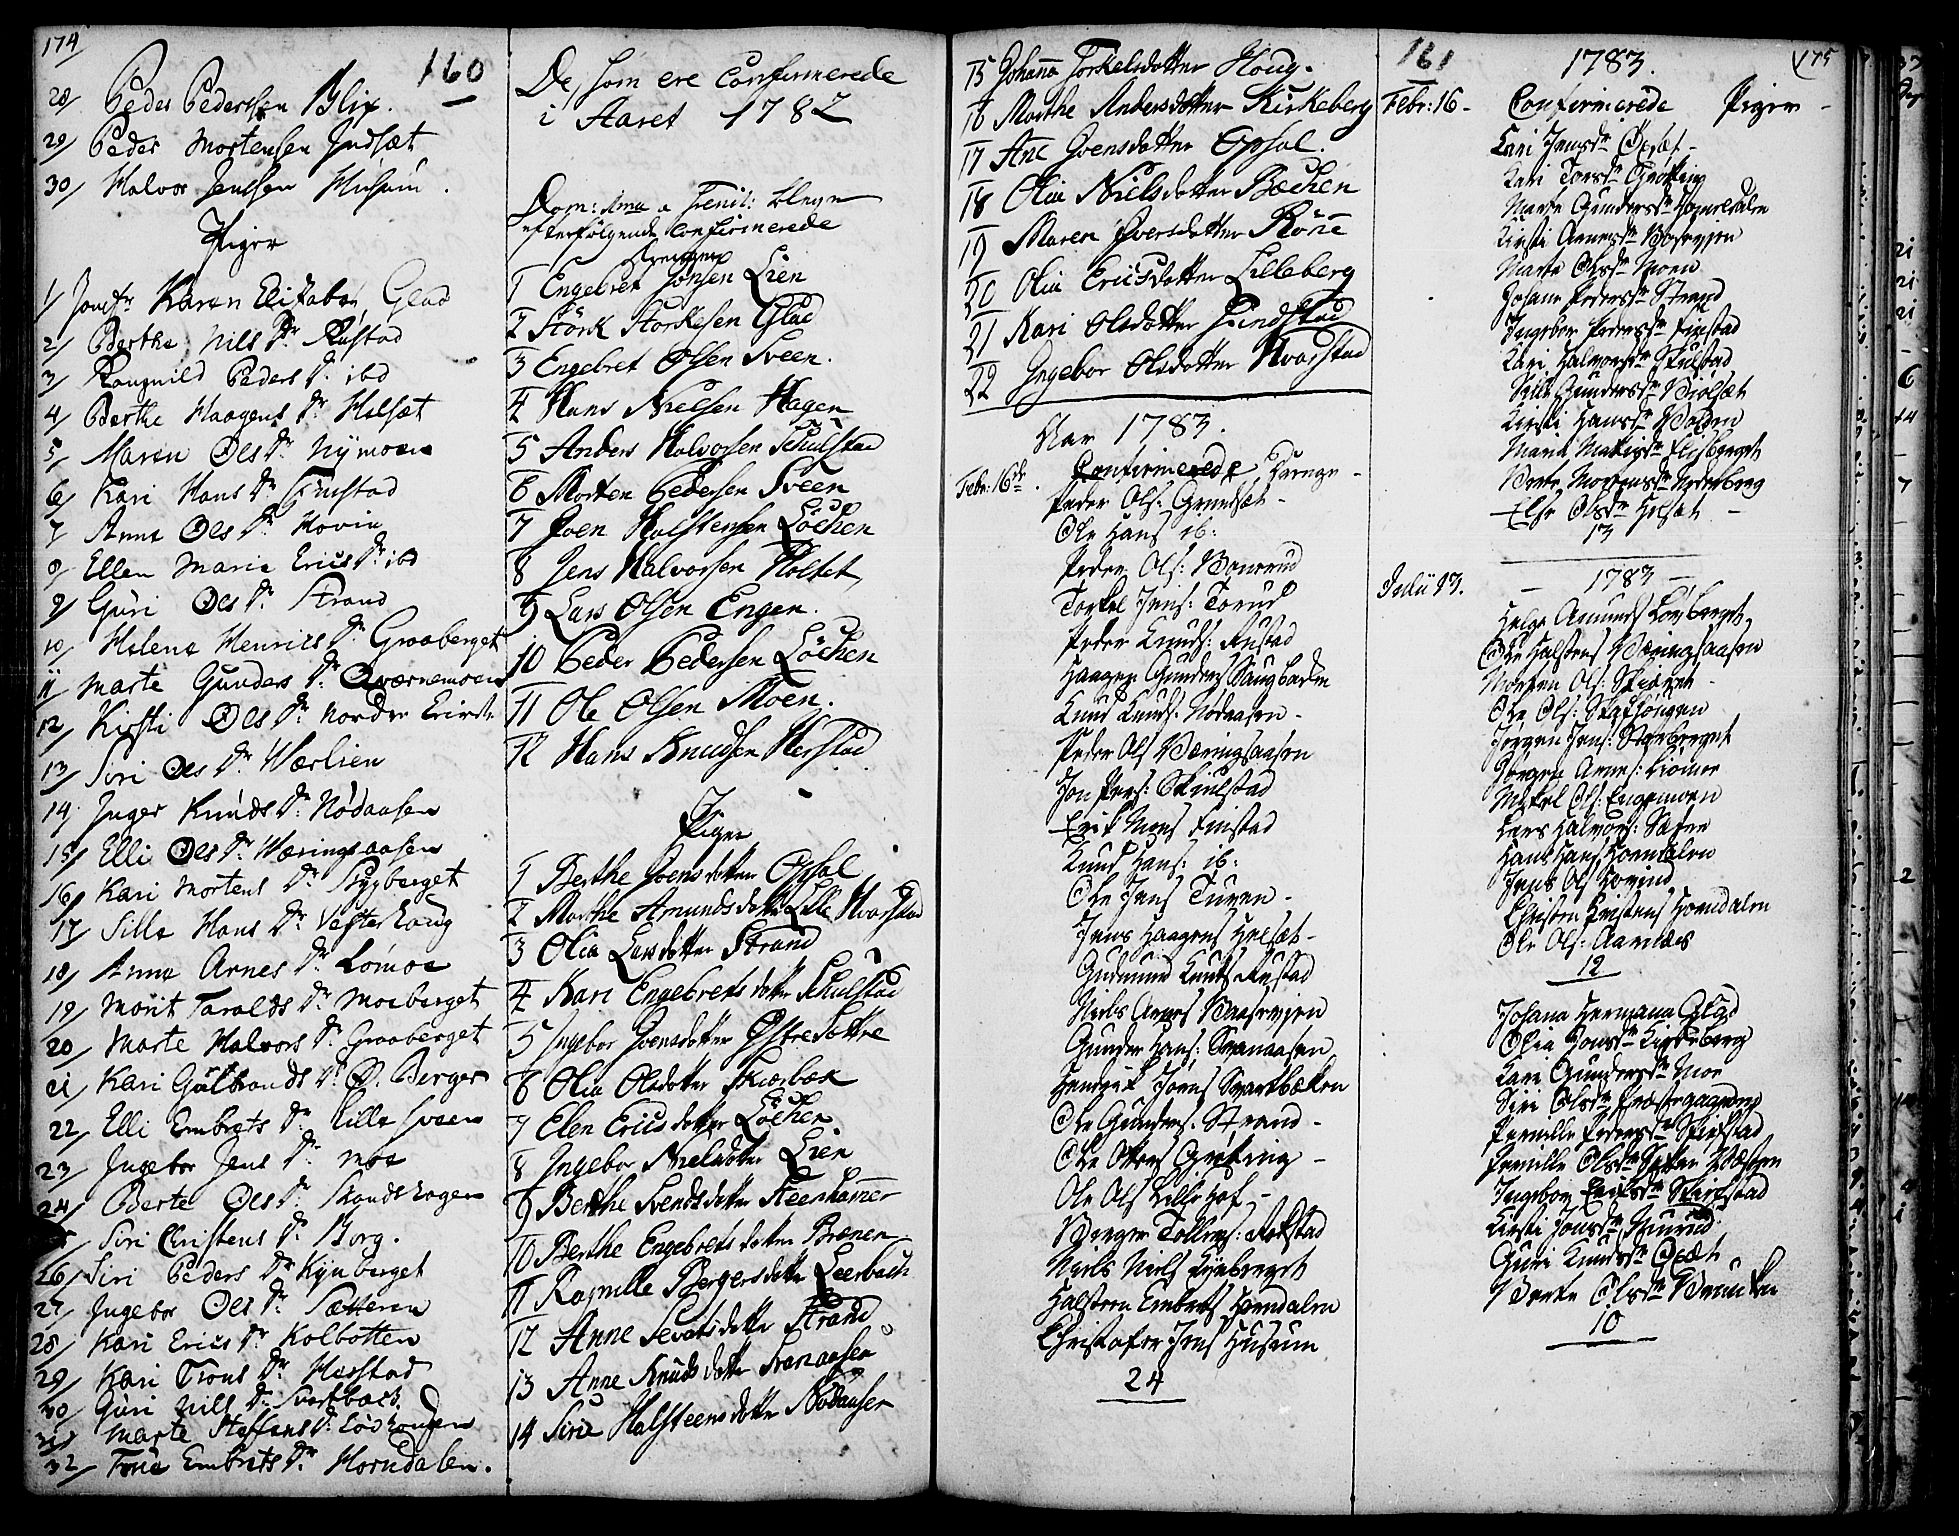 174
160
28/ Peder Pedersen Blix.
29/ Peder Mortensen Indsæt
30/ Halvor Jensen Husum.
Piger
1/ Jomfr Karen Elizabet Glad
2/ Berthe Nils Dr. Rustad
3/ Rangnild Peders Dr. ibd
4/ Berthe Haagens Dr. Helsæt
5/ Maren Ols Dr. Nymoen
6/ Kari Hans Dr. Finstad
7 Anne Ols Dr. Hovin
8/ Ellen Marie Erics Dr. ibd
9/ Guri Ols Dr. Strand
10/ Helene Henrics Dr. Graaberget
11 Marte Gunders Dr. Qværnemoen
12/ Kirsti Ols Dr. Norder
13/ Siri Ols Dr. Wærlien
14/ Inger Knuds Dr. Nødaasen
15/ Elli Ols Dr. Wæringsaasen
16/ Kari Mortens Dr. Stygberget
17/ Sille Hans Dr. Vesterhaug
18/ Anne Arnes Dr. Lømoe
19/ Morit Taralds Dr. Moeberget
20/ Marte Halvors Dr. Graaberget
21 Kari Gulbrands Dr. Ø. Berger
22/ Elli Embrets Dr. Lille Sveen
23/ Ingebor Jens Dr. Moe
24/ Berte Ols Dr. Strandhagen
Siri Christens Dr. Borg.
26/ Siri Peders Dr. Kynberget
27/ Ingebor Ols Dr. Sætteren
28/ Kari Erics Dr. Kolbotten
29/ Kari Trons Dr. Herstad
30 Guri Nils Dr. Svartbæck
31/ Marte Steffens Dr. Lødhougen
32/ Embrets Dr. Horndalen.
De, som ere Confirmerede
i Aaret 1782
Dom:
efterfølgende Confirmerede
Drenge
1 Engebret Jonsen Lien
2 Störk Storkesen Glad
3 Engebret Olsen Sveen.
4 Hans Nielsen Hagen
5 Anders Halvorsen Schulstad
6 Morten Pedersen Sveen
7 Joen Halstensen Löchen
8 Jens Halvorsen Holtet
9 Lars Olsen Engen.
10 Peder Pedersen Löchen
11 Ole Olsen Moen.
12 Hans Knudsen Herstad
Piger
1 Berthe Joensdotter Opsal
2 Marthe Amundsdotter Lille Hvarstad
3 Olia Larsdotter Strand
4 Kari Engebretsdotter Schulstad
5 Ingebor Joensdotter Østre Løttre
6 Olia Olsdotter Skiærbæk
7 Elen Ericsdotter Löchen
8 Ingebor Nielsdotter Lien
9 Berthe Svendsdotter Steenhamer
10 Berthe Engebretsdotter Brænen
11 Ragnille Bergersdotter Leerbach
12 Anne Sevatsdotter Strand
13 Anne Knudsdotter Svenaasen
14 Sirie Halsteensdotter Nödaasen
15 Johanna Torkelsdotter Houg.
16 Marthe Andersdotter Kirkeberg
17 Ane Joensdotter Opsal.
18 Olia Nielsdotter Bæcken
19 Maren Iversdotter Rönne
20 Olia Ericsdotter Lilleberg
21 Kari Olsdotter Findstad
22 Ingebor Olsdotter Hvarstad
Aar 1783.
Febr: 16de. Confirmerede Drenge
Peder Ols: Grundset
Ole Hans ib:
Peder Ols: Bonerud
Torkel Jens: Torud
Peder Knuds: Rustad
Haagen Gunders Saugbaden
Knud Knuds: Nødaasen
Peder Ols Væringsaasen
Jon Pers: Skiulstad
Erik Mons Finstad
Knud Hans: ib:
Ole Jens Turen
Jens Haagens Helsæt
Gudmund Knuds Rustad
Niels Arnes Baasvejen
Gunder Hans: Svenaasen
Henrik Joens Svartbækken
Ole Gunders. Strand
Ole Ottars Grøting
Ole Ols Lillehof
Berger Tollevs: Rokstad
Niels Niels Kynberget
Halsteen Embrets Horndalen
Christofer Jens Husum
24
161
175
1783.
Febr: 16 Confirmerede Piger
Kari Jensdr Opset
Kari Torsdr Grötting
Marte Gundersdr Horndalen
Kirsti Arnesdr Basvejen
Marte Olsdr Moen
Johane Pedersdr Strand
Ingebor Pedersdr Finstad
Kari Halvorsdr Skulstad
Sille Gundersdr Biölset
Kirsti Hansdr Bolden
Maria Matisdr Flisberget
Berte Mortensdr Nordenberg
Else Olsdr Helset
13
1783
Julii 13.
Helge Amunds Lövberget
Ole Halstens Væringsaasen
Morten Ols: Skieren
Ole Ols: Stafsöngen
Jørgen Jens: Stenberget
Jørgen Arnes: Liomoe
Mikel Ols: Engemoen
Lars Halvors: Sætre
Hans Hans Horndalen
Jens Ols Hovind
Christen Kristens Horndalen
Ole Ols: Aarnæs
12
Johana Hermana Glad
Olia Jonsdr Kirkeberg
Kari Gundersdr Moe
Siri Olsdr Præstegaarden
Pernille Pedersdr Skiefstad
Pernille Olsdr
Ingebor Eriksdr Skiefstad
Kirsti Jonsdr
Guri Knudsdr Opset
Berte Olsdr
10